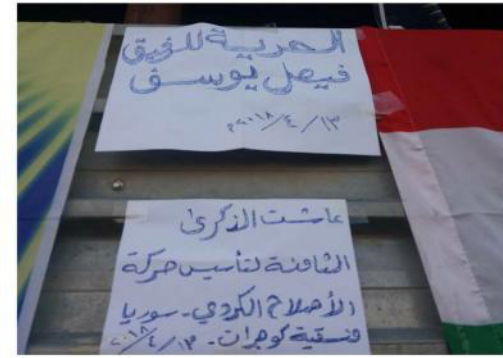 الحرية للرفيق
فيصل يوسف
١٣/٤/٢٠١٨م
عاشت الذكرى
الثامنة لتأسيس حركة
الأصلاح الكردي - سوريا
منسقية كوجرات - ١٣/٤/٢٠١٨